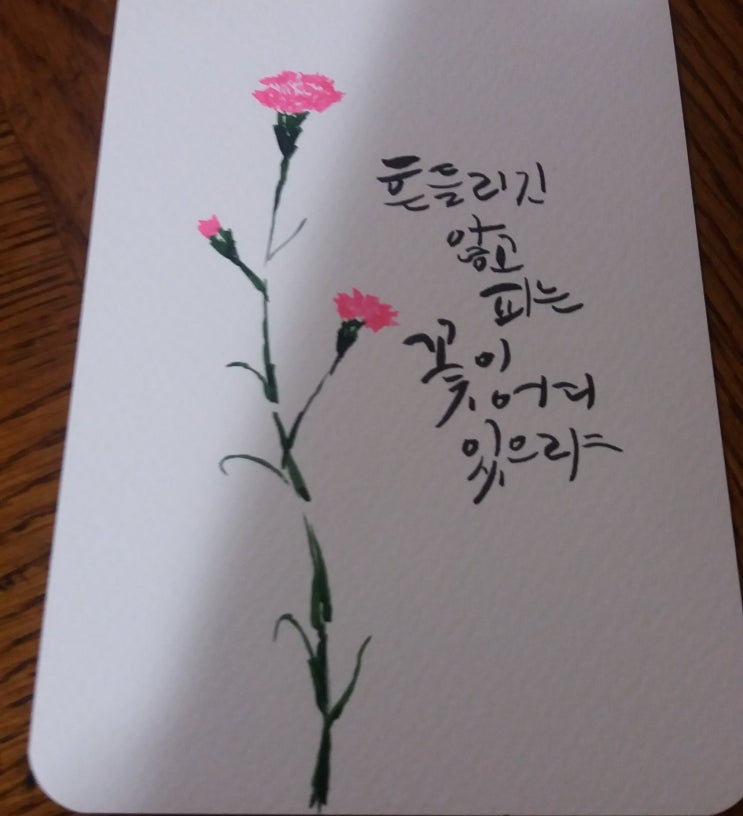 흔들리긴
않고
피는
꽃이
어디
있으랴